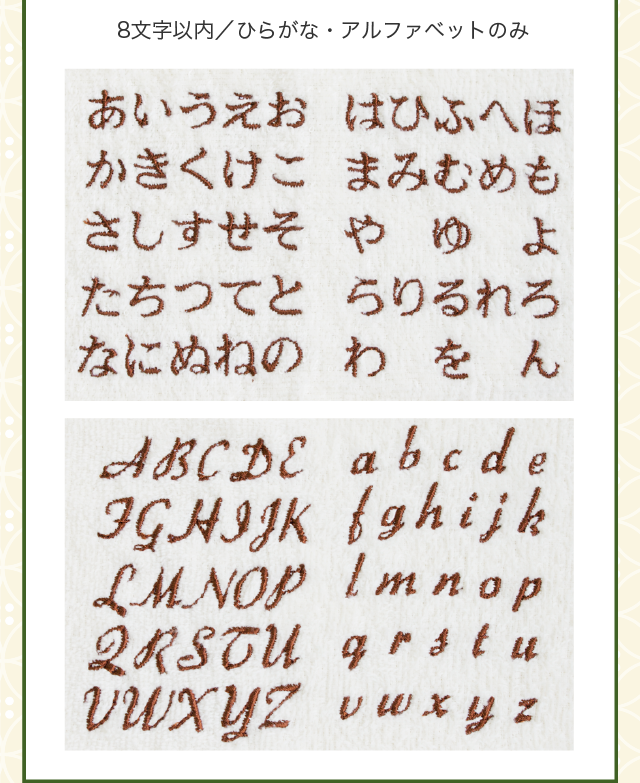 8文字以内／ひらがな・アルファベットのみ
あいうえお
かきくけこ
さしすせそ
たちつてと
なにぬねの
はひふへほ
まみむめも
や ゆ よ
らりるれろ
わ を ん
ABCDE
FGHIJK
LMNOP
QRSTU
VWXYZ
a b c d e
f g h i j k
l m n o p
q r s t u
v w x y z